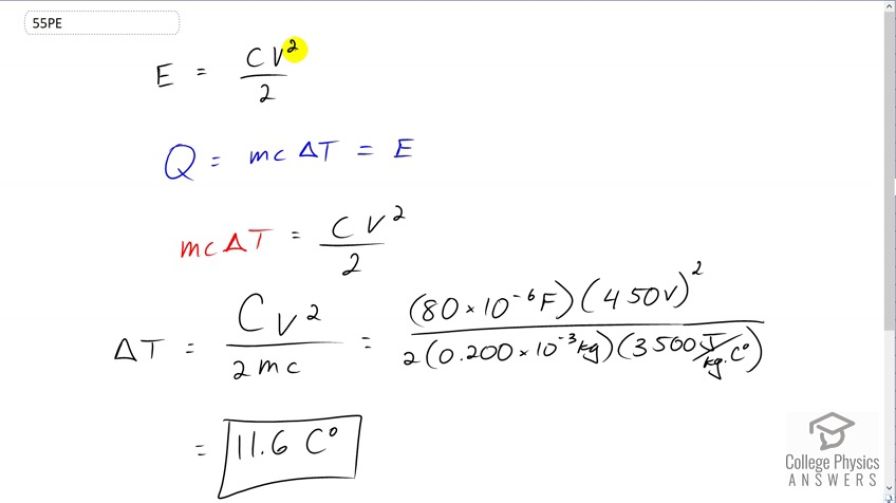 55PE
E = CV²/2
Q = mcΔT = E
mcΔT = CV²/2
ΔT = CV²/2mc = (80×10⁻⁶F)(450V)²/2(0.200×10⁻³kg)(3500 J/kg·C°)
= 11.6 C°
College Physics
ANSWERS